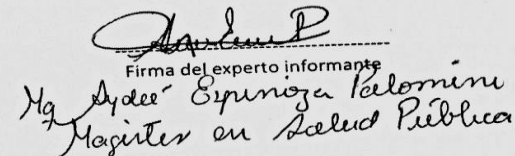 Firma del experto informante
Mg Aydeé Espinoza Palomino
Magister en Salud Pública